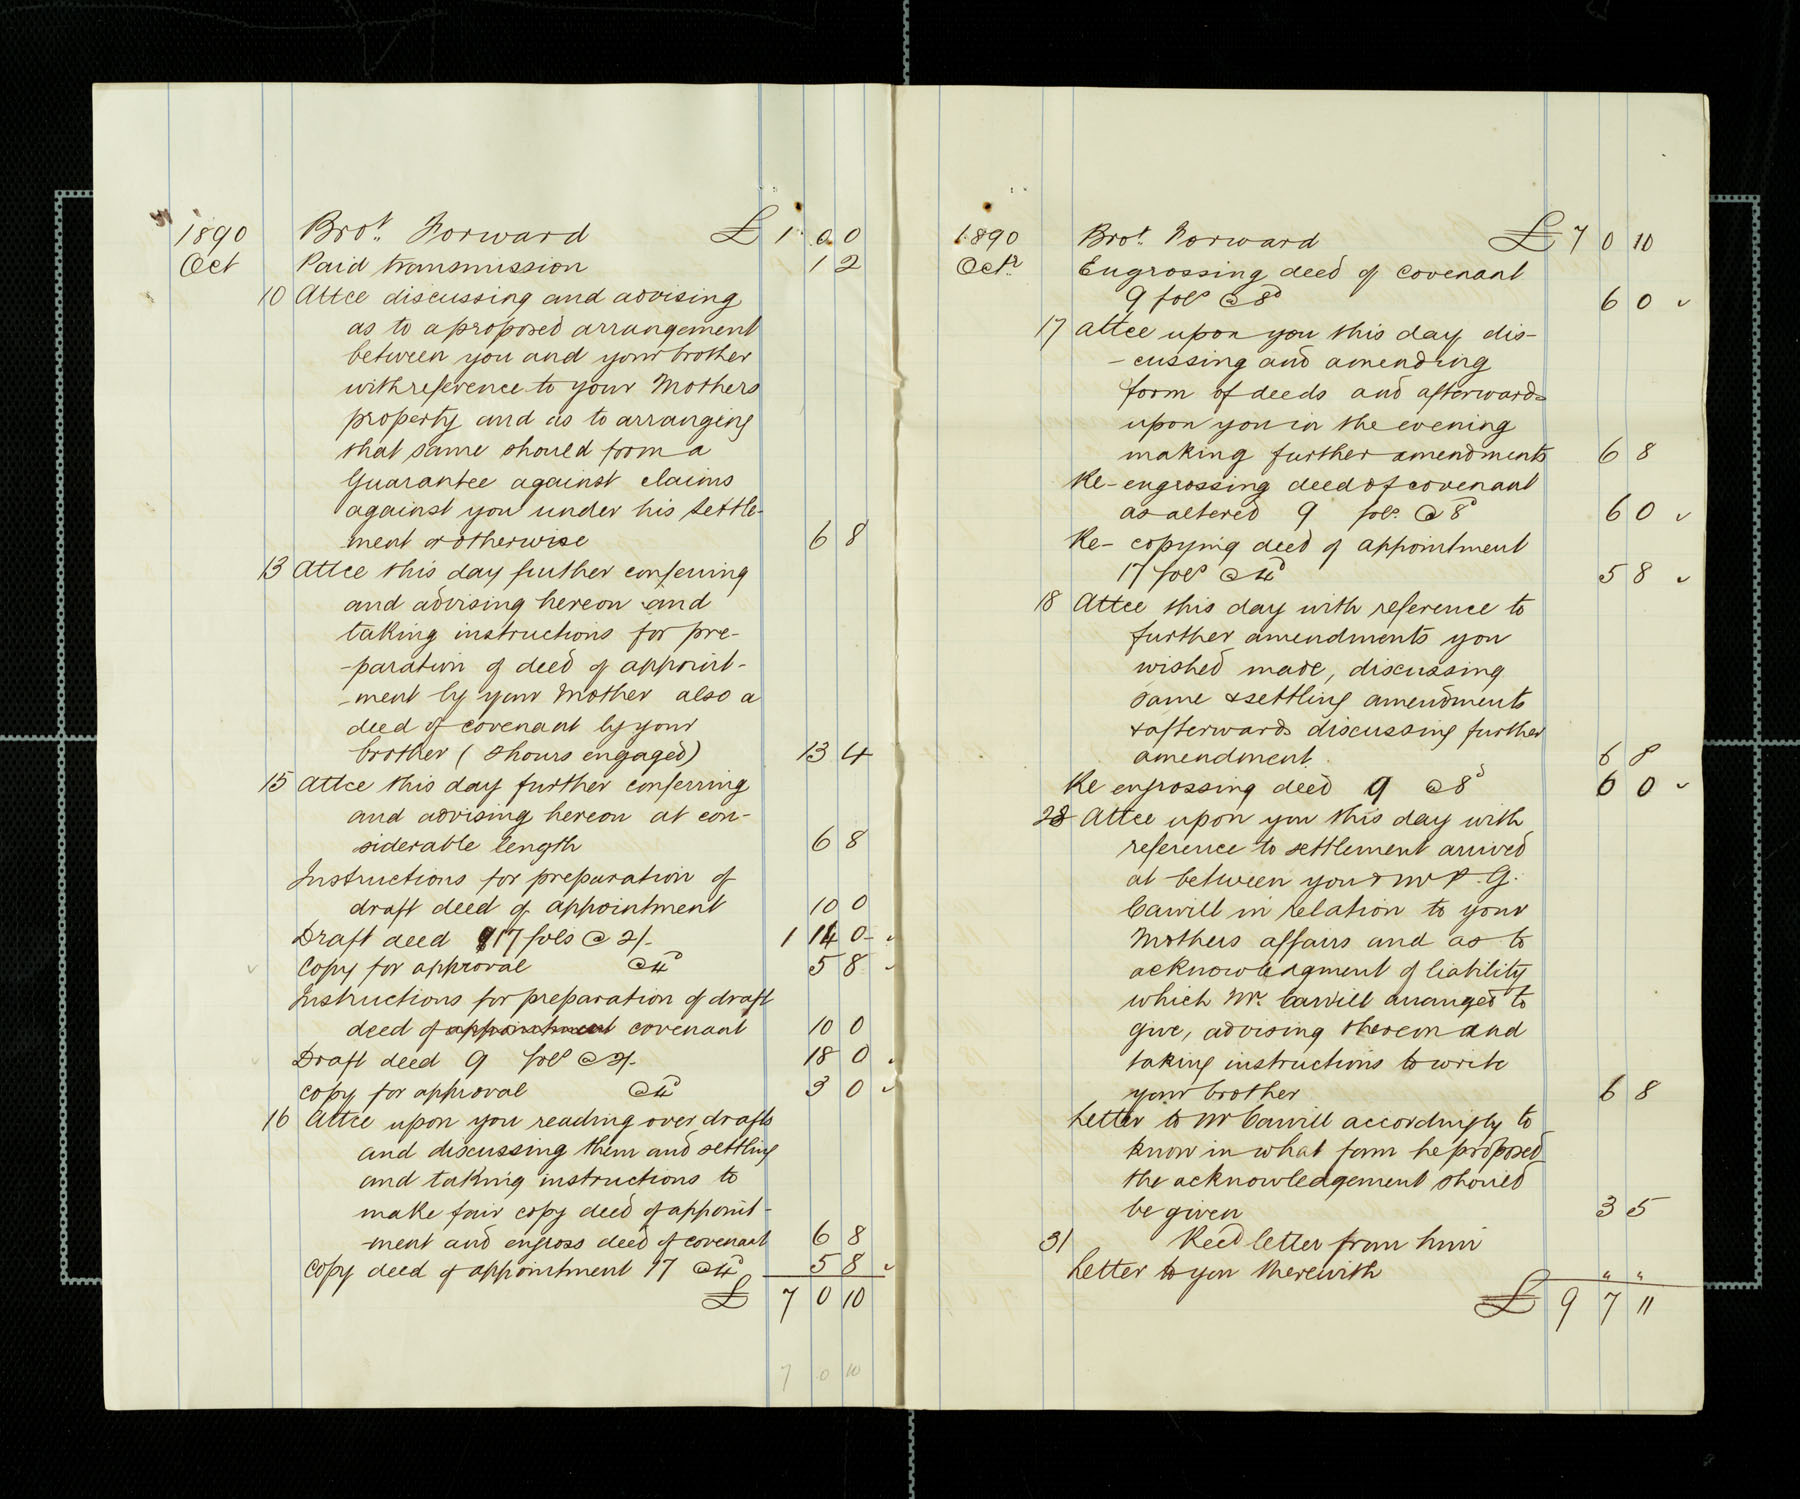 1890 Brot. Forward £ 1 0 0
Oct Paid transmission 1 2
10 Attce discussing and advising
as to a proposed arrangement
between you and your brother
with reference to your Mothers
property and as to arranging
that same should form a
Guarantee against claims
against you under his settle-
ment or otherwise 6 8
13 Attce this day further conferring
and advising hereon and
taking instructions for pre-
-paration of deed of appoint-
-ment by your Mother also a
deed of covenant by your
brother ( 2 hours engaged) 13 4
15 Attce this day further conferring
and advising hereon at con-
siderable length 6 8
Instructions for preparation of
draft deed of appointment 10 0
Draft deed 17 fols @ 2/- 1 14 0
Copy for approval @ 4d 5 8
Instructions for preparation of draft
deed of appointment covenant 10 0
Draft deed 9 fols @ 2/- 18 0
Copy for approval @ 4d 3 0
16 Attce upon you reading over drafts
and discussing them and settling
and taking instructions to
make fair copy deed of appoint-
-ment and engross deed of covenant 6 8
Copy deed of appointment 17 @ 4d 5 8
£ 7 0 10
7 0 10
1890 Brot. Forward £ 7 0 10
Octr Engrossing deed of covenant
9 fols @ 8d 6 0
17 Attce upon you this day dis-
-cussing and amending
form of deeds and afterwards
upon you in the evening
making further amendments 6 8
Re-engrossing deed of covenant
as altered 9 fols. @ 8d 6 0
Re-copying deed of appointment
17 fols @ 4d 5 8
18 Attce this day with reference to
further amendments you
wished made, discussing
same & settling amendments
& afterwards discussing further
amendment 6 8
Re engrossing deed 9 @ 8d 6 0
28 Attce upon you this day with
reference to settlement arrived
at between you & Mr P. G.
Cawill in relation to your
Mothers affairs and as to
acknowledgment of liability
which Mr. Cawill arranged to
give, advising thereon and
taking instructions to write
your brother 6 8
Letter to Mr Cawill accordingly to
know in what form he proposed
the acknowledgement should
be given 3 5
31 Recd letter from him
Letter to you therewith " "
£ 9 7 11